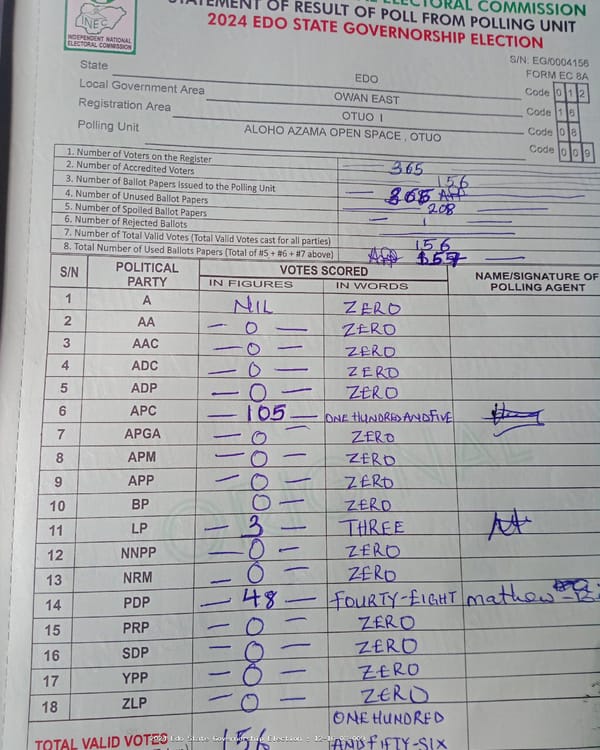 INEC
INDEPENDENT NATIONAL
ELECTORAL COMMISSION
ELECTORAL COMMISSION
STATEMENT OF RESULT OF POLL FROM POLLING UNIT
2024 EDO STATE GOVERNORSHIP ELECTION
S/N: EG/0004156
FORM EC 8A
State EDO Code 0 1 2
Local Government Area OWAN EAST Code 1 6
Registration Area OTUO I Code 0 8
Polling Unit ALOHO AZAMA OPEN SPACE , OTUO Code 0 0 9
1. Number of Voters on the Register 365
2. Number of Accredited Voters 156
3. Number of Ballot Papers Issued to the Polling Unit 365
4. Number of Unused Ballot Papers 208
5. Number of Spoiled Ballot Papers —
6. Number of Rejected Ballots 1
7. Number of Total Valid Votes (Total Valid Votes cast for all parties) 156
8. Total Number of Used Ballots Papers (Total of #5 + #6 + #7 above) 157 —
S/N POLITICAL PARTY VOTES SCORED NAME/SIGNATURE OF POLLING AGENT
IN FIGURES IN WORDS
1 A NIL ZERO
2 AA – 0 — ZERO
3 AAC — 0 — ZERO
4 ADC — 0 — ZERO
5 ADP — 0 — ZERO
6 APC — 105 — ONE HUNDRED AND FIVE
7 APGA — 0 — ZERO
8 APM — 0 — ZERO
9 APP — 0 — ZERO
10 BP 0 — ZERO
11 LP — 3 — THREE
12 NNPP — 0 — ZERO
13 NRM — 0 — ZERO
14 PDP — 48 — FOURTY-EIGHT mathew
15 PRP — 0 — ZERO
16 SDP — 0 — ZERO
17 YPP — 0 — ZERO
18 ZLP — 0 — ZERO
TOTAL VALID VOTES 156 ONE HUNDRED
AND FIFTY-SIX
ORIGINAL